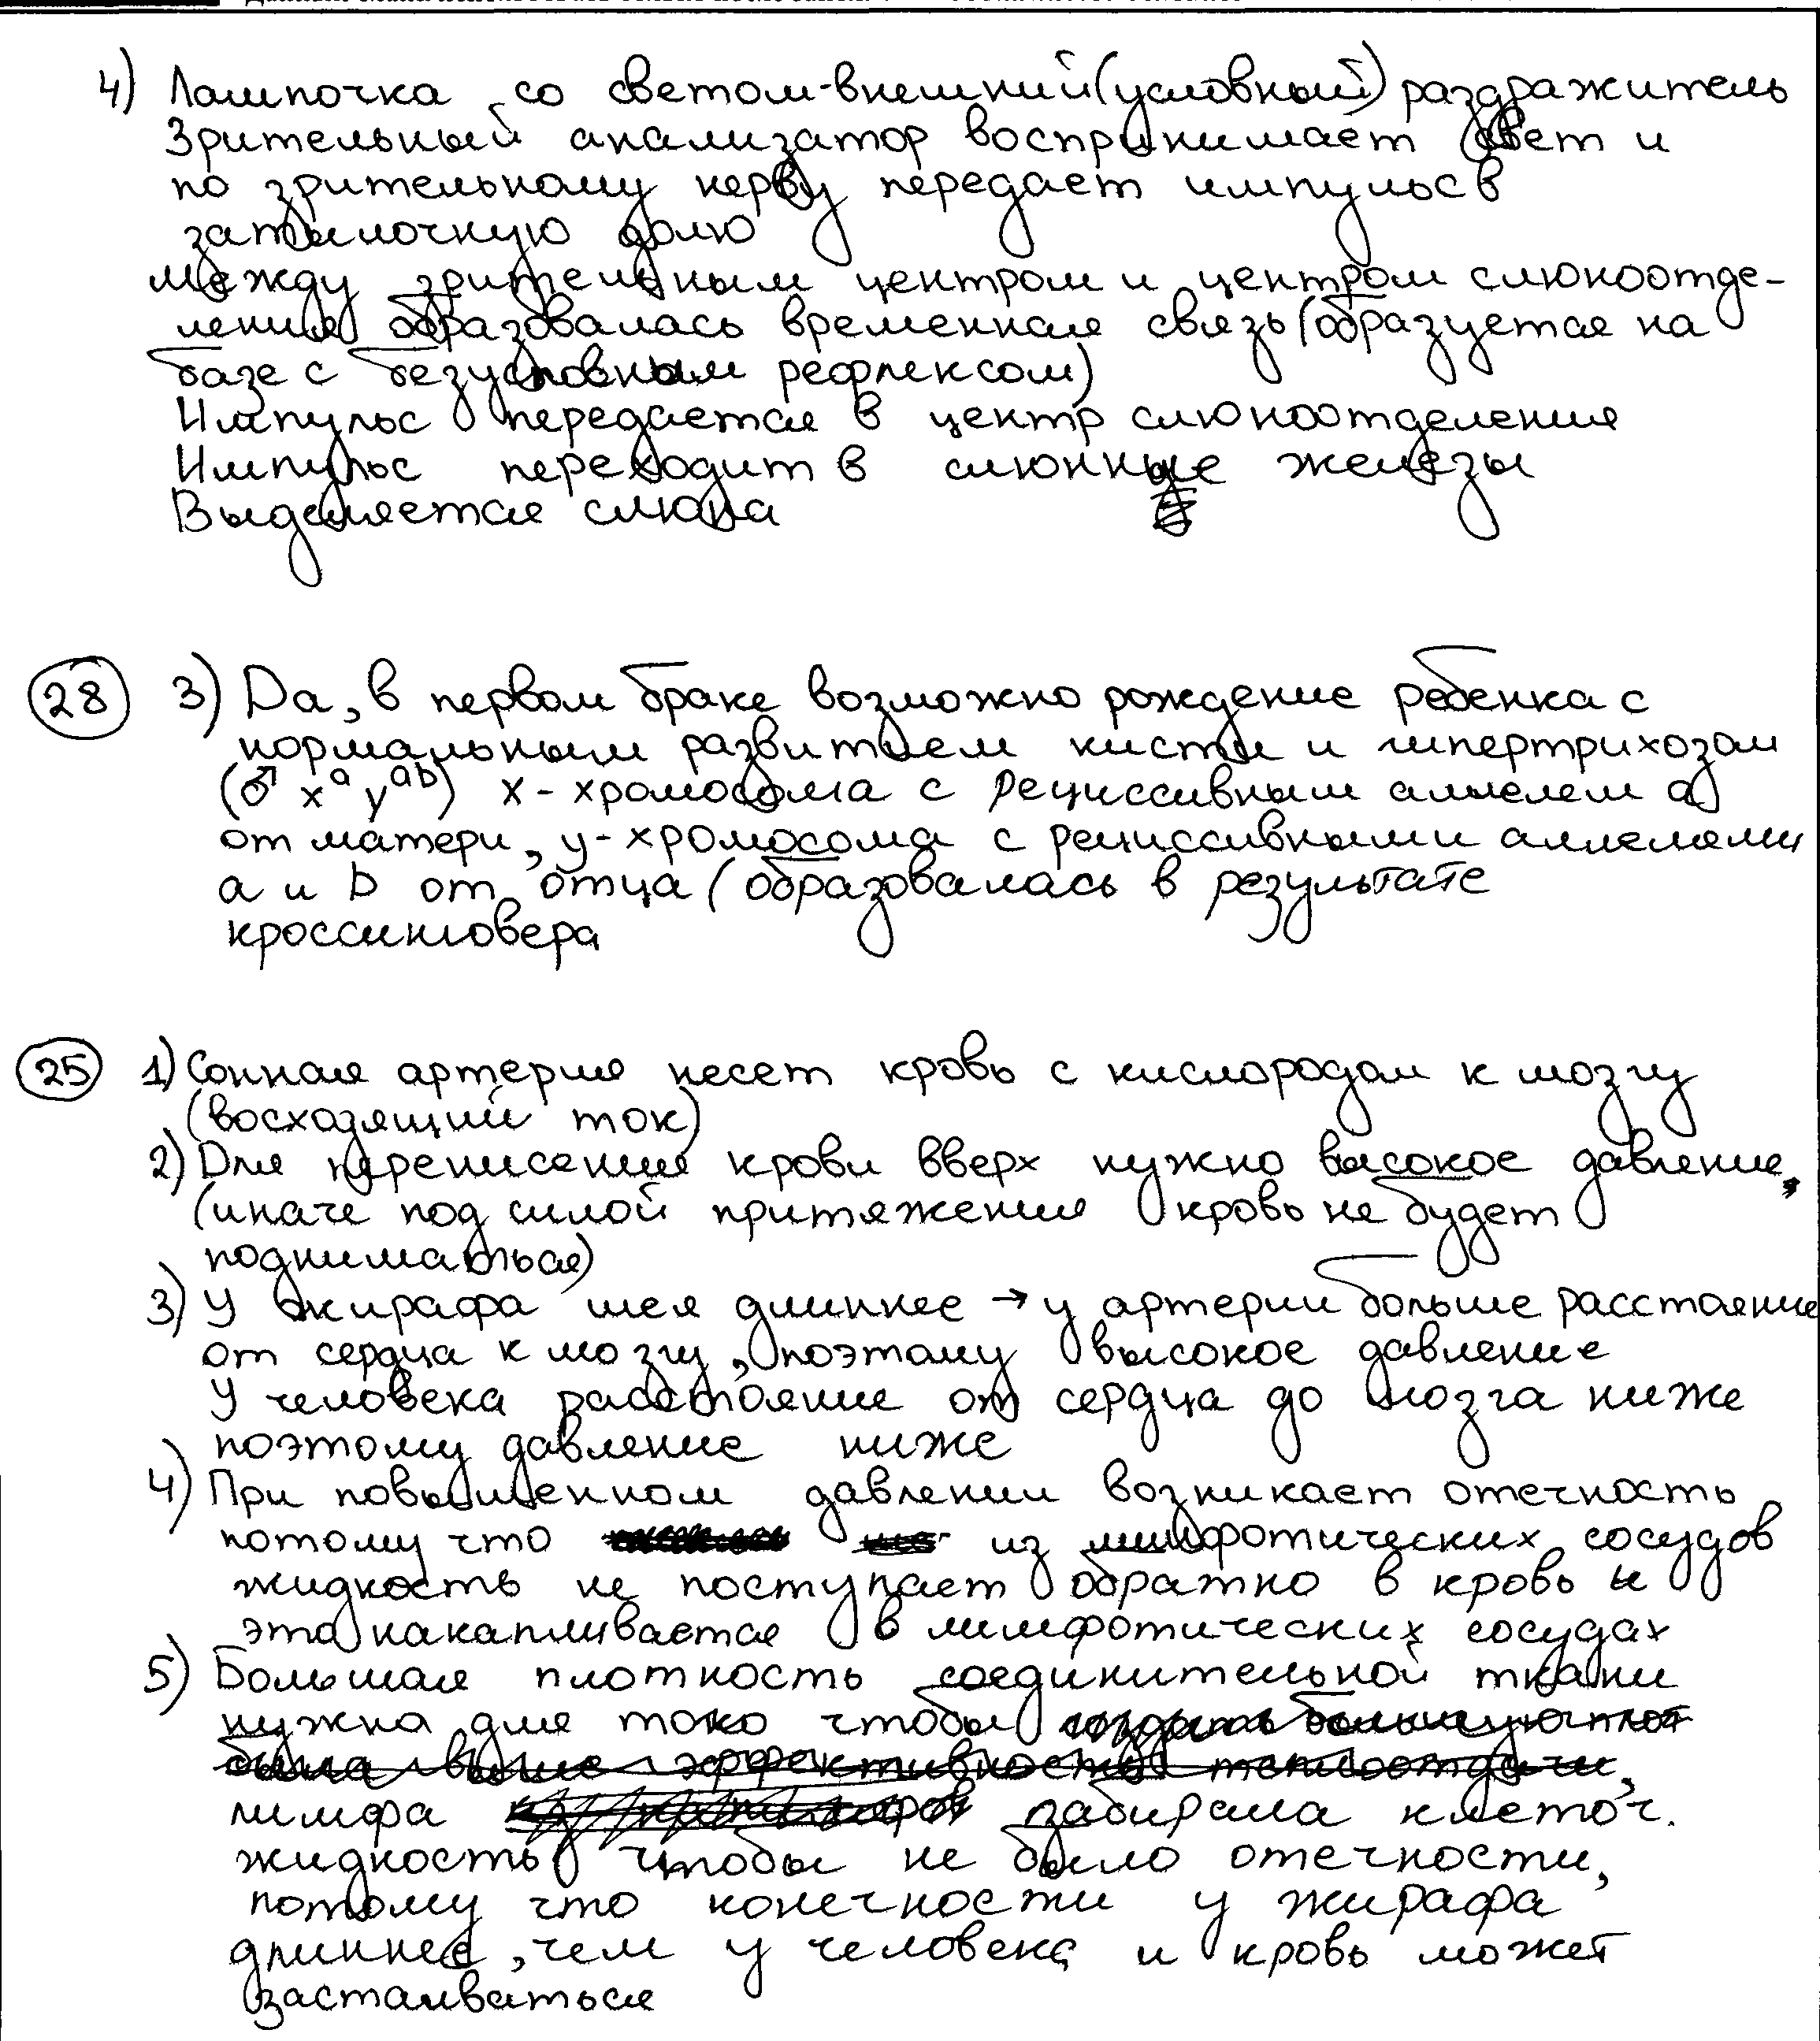 4) Лампочка со светом-внешний (условный) раздражитель
Зрительный анализатор воспринимает свет и
по зрительному нерву передает импульс в
затылочную долю
между зрительным центром и центром слюноотде-
ления образовалась временная связь (образуется на
базе с безусловным рефлексом)
Импульс передается в центр слюноотделения
Импульс переходит в слюнные железы
Выделяется слюна
28 3) Да, в первом браке возможно рождение ребенка с
нормальным развитием кисти и гипертрихозом
(♂ xᵃ yᵃᵇ) x - хромосома с рециссивным аллелем a
от матери, y-хромосома с рециссивными аллелями
a и b от отца (образовалась в результате
кроссинговера
25 1) Сонная артерия несет кровь с кислородом к мозгу
(восходящий ток)
2) Для перенисения крови вверх нужно высокое давление,
(иначе под силой притяжения кровь не будет
подниматься)
3) У жирафа шея длиннее → у артерии больше расстояние
от сердца к мозгу, поэтому высокое давление
У человека расстояние от сердца до мозга ниже
поэтому давление ниже
4) При повышенном давлении возникает отечность
потому что из лимфотических сосудов
жидкость не поступает обратно в кровь и
это накапливается в лимфотических сосудах
5) Большая плотность соединительной ткани
нужна для токо чтобы создать большую плот
была выше эффективность теплоотдачи,
лимфа забирала клеточ.
жидкость чтобы не было отечности,
потому что конечности у жирафа
длиннее, чем у человека и кровь может
застаиваться